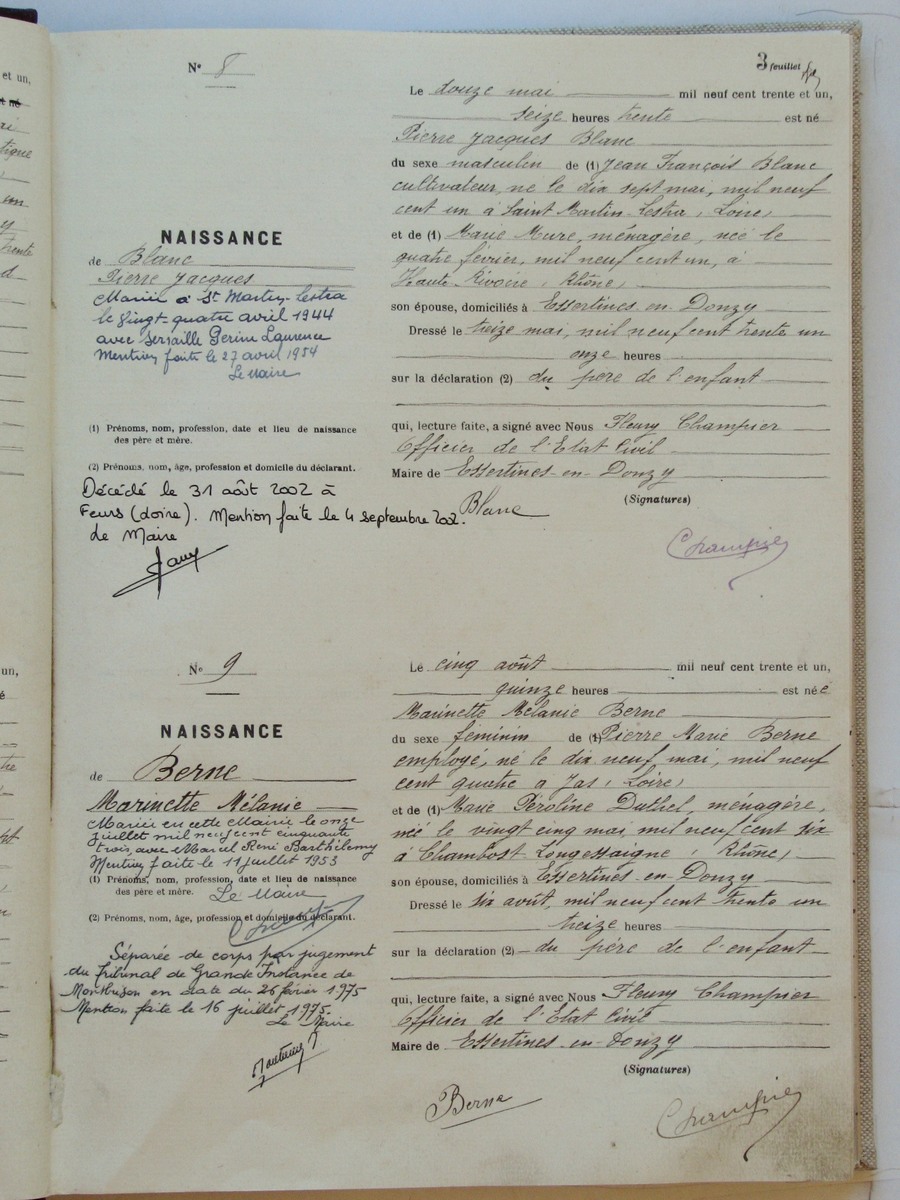 3 feuillet
N° 8
Le douze mai mil neuf cent trente et un,
seize heures trente est né
Pierre Jacques Blanc
du sexe masculin de (1) Jean François Blanc
cultivateur, né le dix sept mai, mil neuf
cent un à Saint Martin-Lestra, Loire,
et de (1) Marie Mure, ménagère, née le
quatre février, mil neuf cent un, à
Haute Rivoire, Rhône,
son épouse, domiciliés à Essertines-en-Donzy
Dressé le treize mai, mil neuf cent trente un
onze heures
sur la déclaration (2) du père de l'enfant
qui, lecture faite, a signé avec Nous Fleury Champier
Officier de l'Etat Civil
Maire de Essertines-en-Donzy
(Signatures)
Blanc
Champier
NAISSANCE
de Blanc
Pierre Jacques
Marié à St Martin-Lestra
le vingt-quatre avril 1944
avec Perine Laurence
Mention faite le 27 avril 1954
Le Maire
(1) Prénoms, nom, profession, date et lieu de naissance
des père et mère.
(2) Prénoms, nom, âge, profession et domicile du déclarant.
Décédé le 31 août 2002 à
Feurs (Loire). Mention faite le 4 septembre 2002.
Le Maire
N° 9
Le cinq août mil neuf cent trente et un,
quinze heures est née
Marinette Mélanie Berne
du sexe féminin de (1) Pierre Marie Berne
employé, né le dix neuf mai, mil neuf
cent quatre a Jas, Loire,
et de (1) Marie Péroline Duthel, ménagère,
née le vingt cinq mai mil neuf cent six
à Chambost Longessaigne, Rhône,
son épouse, domiciliés à Essertines-en-Donzy
Dressé le six août, mil neuf cent trente un
treize heures
sur la déclaration (2) du père de l'enfant
qui, lecture faite, a signé avec Nous Fleury Champier
Officier de l'Etat Civil
Maire de Essertines-en-Donzy
(Signatures)
Berne
Champier
NAISSANCE
de Berne
Marinette Mélanie
Mariée en cette Mairie le onze
juillet mil neuf cent cinquante
trois avec Marcel René Barthélemy
Mention faite le 11 juillet 1953
(1) Prénoms, nom, profession, date et lieu de naissance
des père et mère.
Le Maire
(2) Prénoms, nom, âge, profession et domicile du déclarant.
Séparée de corps par jugement
du Tribunal de Grande Instance de
Montbrison en date du 26 février 1975
Mention faite le 16 juillet 1975.
Le Maire